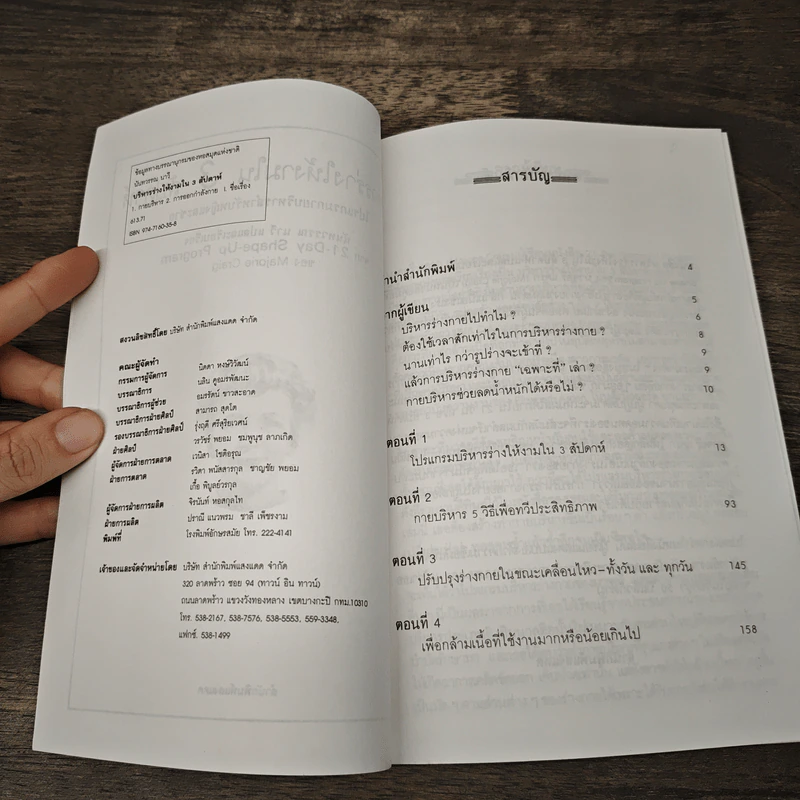 ข้อมูลทางบรรณานุกรมของหอสมุดแห่งชาติ
นันทวรรณ นาวี
บริหารร่างให้งามใน 3 สัปดาห์
1. กายบริหาร 2. การออกกำลังกาย I. ชื่อเรื่อง
613.71
ISBN 974-7160-35-8
สงวนลิขสิทธิ์โดย บริษัท สำนักพิมพ์แสงแดด จำกัด
คณะผู้จัดทำ
กรรมการผู้จัดการ นิดดา หงษ์วิวัฒน์
บรรณาธิการ นลิน คูอมรพัฒนะ
บรรณาธิการผู้ช่วย อมรรัตน์ ขาวสะอาด
บรรณาธิการฝ่ายศิลป์ สามารถ สุดโต
รองบรรณาธิการฝ่ายศิลป์ รุ่งฤดี ศรีสุริยเวศน์
ฝ่ายศิลป์ วรวัชร์ พยอม ชมพูนุช ลาภเกิด
ผู้จัดการฝ่ายการตลาด เวนิสา โชติอรุณ
ฝ่ายการตลาด รวิตา พนัสสารกุล ชาญชัย พยอม
เกื้อ พิบูลย์วรกุล
ผู้จัดการฝ่ายการผลิต จิรนันท์ หอสกุลไท
ฝ่ายการผลิต ปราณี แนวพรม ชาลี เพ็ชรงาม
พิมพ์ที่ โรงพิมพ์อักษรสมัย โทร. 222-4141
เจ้าของและจัดจำหน่ายโดย บริษัท สำนักพิมพ์แสงแดด จำกัด
320 ลาดพร้าว ซอย 94 (ทาวน์ อิน ทาวน์)
ถนนลาดพร้าว แขวงวังทองหลาง เขตบางกะปิ กทม.10310
โทร. 538-2167, 538-7576, 538-5553, 559-3348,
แฟกซ์. 538-1499
สารบัญ
านำสำนักพิมพ์ 4
ากผู้เขียน 5
บริหารร่างกายไปทำไม ? 6
ต้องใช้เวลาสักเท่าไรในการบริหารร่างกาย ? 8
นานเท่าไร กว่ารูปร่างจะเข้าที่ ? 9
แล้วการบริหารร่างกาย “เฉพาะที่” เล่า ? 9
กายบริหารช่วยลดน้ำหนักได้หรือไม่ ? 10
ตอนที่ 1
โปรแกรมบริหารร่างให้งามใน 3 สัปดาห์ 13
ตอนที่ 2
กายบริหาร 5 วิธีเพื่อทวีประสิทธิภาพ 93
ตอนที่ 3
ปรับปรุงร่างกายในขณะเคลื่อนไหว–ทั้งวัน และ ทุกวัน 145
ตอนที่ 4
เพื่อกล้ามเนื้อที่ใช้งานมากหรือน้อยเกินไป 158